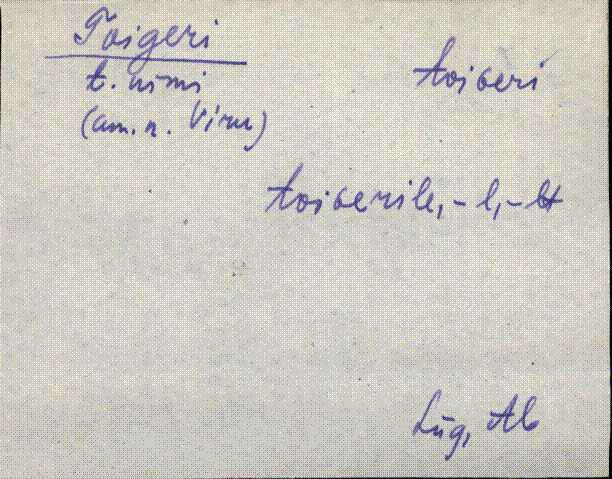 Toigeri
t. nimi
(am. n. Viru)
toiɢeri
toiɢerile, -l, -lt
Lüg, Ab